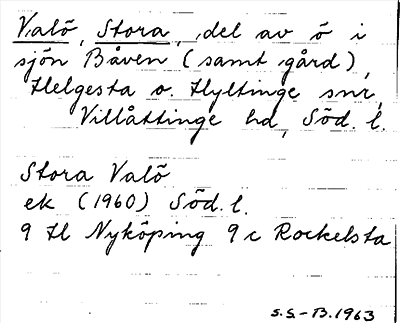 Valö, Stora, del av ö i
sjön Båven (samt gård),
Helgesta o. Hyltinge snr,
Villåttinge hd, Söd. l.
Stora Valö
ek (1960) Söd. l.
9 H Nyköping 9 c Rockelsta
S.S-B. 1963